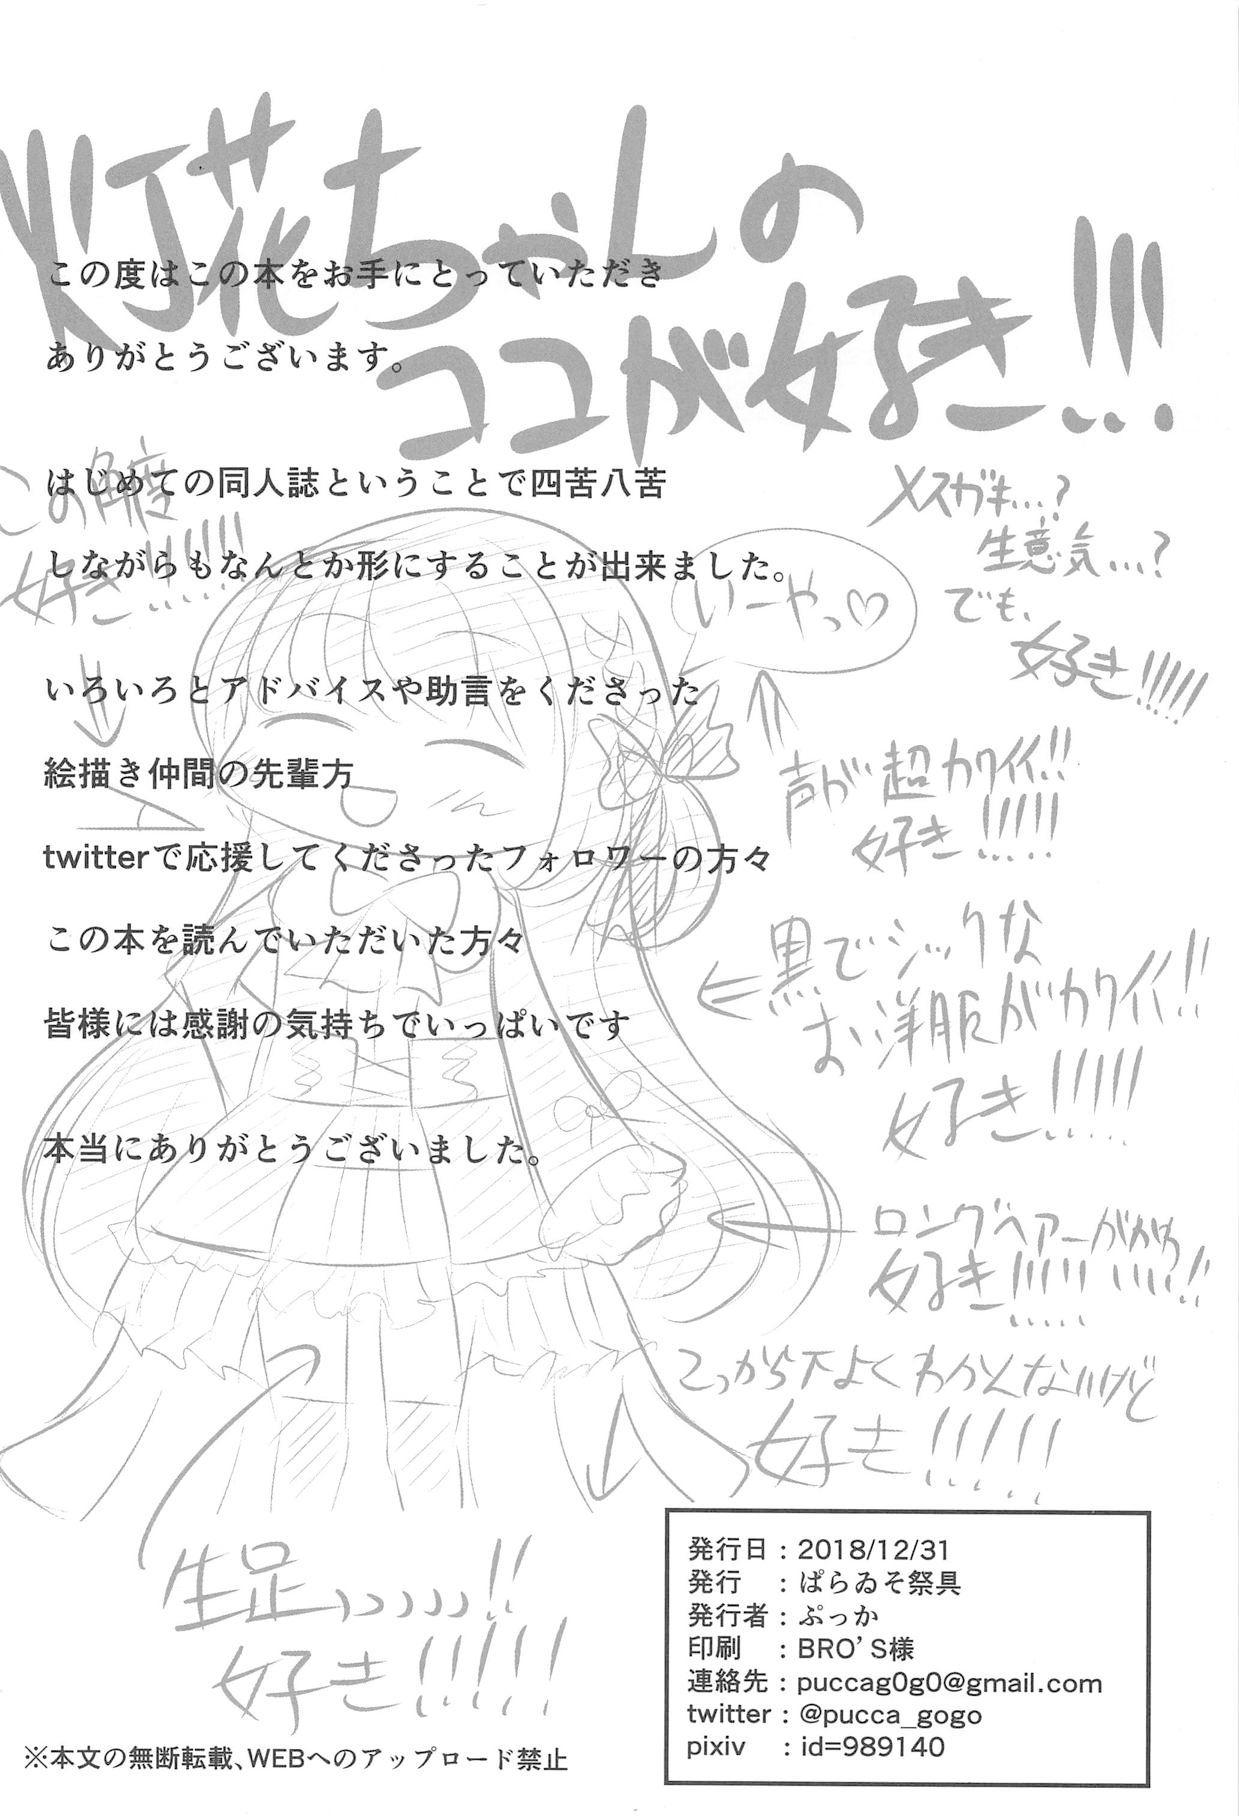 灯花ちゃんの
ココが好き!!!
この度はこの本をお手にとっていただき
ありがとうございます。
はじめての同人誌ということで四苦八苦
しながらもなんとか形にすることが出来ました。
いろいろとアドバイスや助言をくださった
絵描き仲間の先輩方
twitterで応援してくださったフォロワーの方々
この本を読んでいただいた方々
皆様には感謝の気持ちでいっぱいです
本当にありがとうございました。
この角度
好き!!!!!
いーやっ♡
メスガキ...?
生意気...?
でも、
好き!!!!!
声が超カワイイ!!
好き!!!!!
黒でシックな
お洋服がカワイイ!!
好き!!!!!
ロングヘアーが
好き!!!!!
こっから下よくわかんないけど
好き!!!!!
生足
好き!!!!!
発行日：2018/12/31
発行　：ぱらゐそ祭具
発行者：ぷっか
印刷　：BRO'S様
連絡先：puccag0g0@gmail.com
twitter：@pucca_gogo
pixiv　：id=989140
※本文の無断転載、WEBへのアップロード禁止